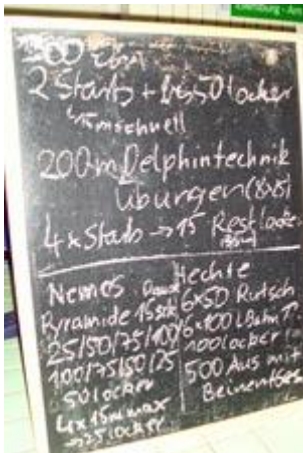 Ellenburg - Am
500 Ein
2 Starts + bis 50 locker
15m schnell
200m Delphintechnik
übungen (8x25)
4x Starts → 15 Rest locker
Nemos
Pyramide 15 Stk
25/50/75/100
100/75/50/25
50 locker
4x 15m max
→ 25 locker
Hechte
6x50 Rutsch
6x100 L Bahn T.
100 locker
500 Aus mit